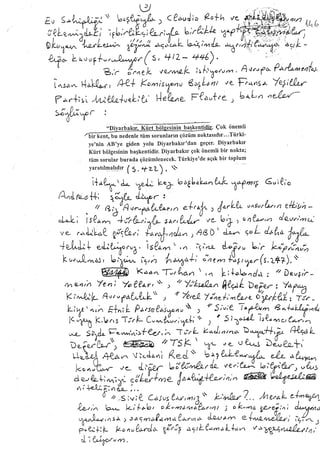 3
146
Ev Sahipliği" başlığıyla, Claudia Roth ve
ülkemizdeki işbirlikçileriyle birlikte yaptığı
Okuyan herkesin gözünü açacak biçimde ayrıntılarıyla açık-
lığa kavuşturuluyor (S. 412-446).
Bir örnek vermek istiyorum. Avrupa Parlamentosu
İnsan Hakları Alt Komisyonu Başkanı ve Fransa Yeşiller
Partisi Milletvekili Helene Floutre, bakın neler
söylüyor:
"Diyarbakır, Kürt bölgesinin başkentidir. Çok önemli
bir kent, bu nedenle tüm sorunların çözüm noktasıdır...Türki-
ye'nin AB'ye giden yolu Diyarbakır'dan geçer. Diyarbakır
Kürt bölgesinin başkentidir. Diyarbakır çok önemli bir nokta;
tüm sorular burada çözümlenecek. Türkiye'de açık bir toplum
yaratılmalıdır" (S. 422).
İtalya'da yedi kez başbakanlık yapmış Guilio
Andreotti şöyle diyor:
"Biz Avrupalıların etrafı, farklı unsurların etkisin-
deki İslam türleriyle sarılıdır ve biz, onların devrimci
ve radikal güçleri tarafından, ABD'den çok daha fazla
tehdit ediliyoruz. İslam'ın içine doğru bir köprünün
kurulması bizim için hayati önem taşıyor (S.247)."
Kaan Turhan'ın kitabında: "Devşir-
menin Yeni Yolları", "Yükselen Alçak Değer: Yapay
Kimlik Avrupalılık", "Yerel Yönetimlere Özerklik: Tür-
kiye'nin Etnik Parselasyonu", "Sivil Toplum Bataklığında
Kuzey Kıbrıs Türk Cumhuriyeti", "Siyasal İslamcıların
ve Sözde Feministlerin Türk Kadınına Dayattığı Alçak
Değerler", "TSK'ye ve Ulus Devleti
Hedef Alan Vicdani Red" başlıklarıyla ele alınan
konular ve diğer bölümlerde verilen bilgiler, ulus
devletimizi çökertme faaliyetlerinin belgeseli
niteliğinde...
"Sivil Casuslarımız" kimler?... Merak etmeyen-
lerin bu kitabı okumamalarını; okuma gereğini duymu-
yorlarsa, saçmalamalarına devam etmemeleri için,
politik konularda görüş açıklamaktan vazgeçmelerini
diliyorum.